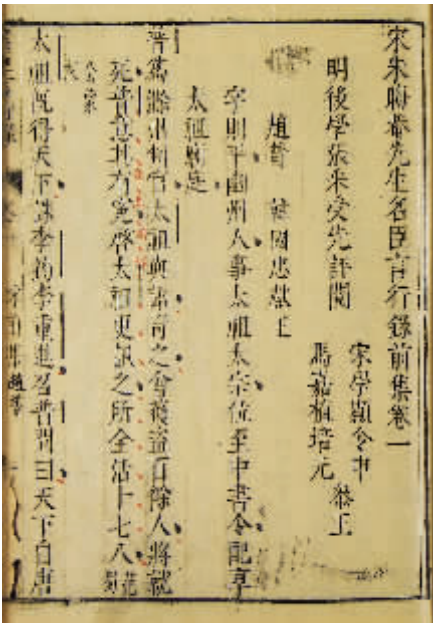 宋朱晦菴先生名臣言行錄前集卷一
明後學張采受先評閱
宋學顯令申
馬嘉植培元
參正
趙普 韓國忠獻王
字則平幽州人事太祖太宗位至中書令配享
太祖廟庭
普為滁州判官太祖與語奇之會獲盜百餘人將就
死普意其有冤啓太祖更訊之所全活十七八
太祖既得天下誅李筠李重進召普問曰天下自唐